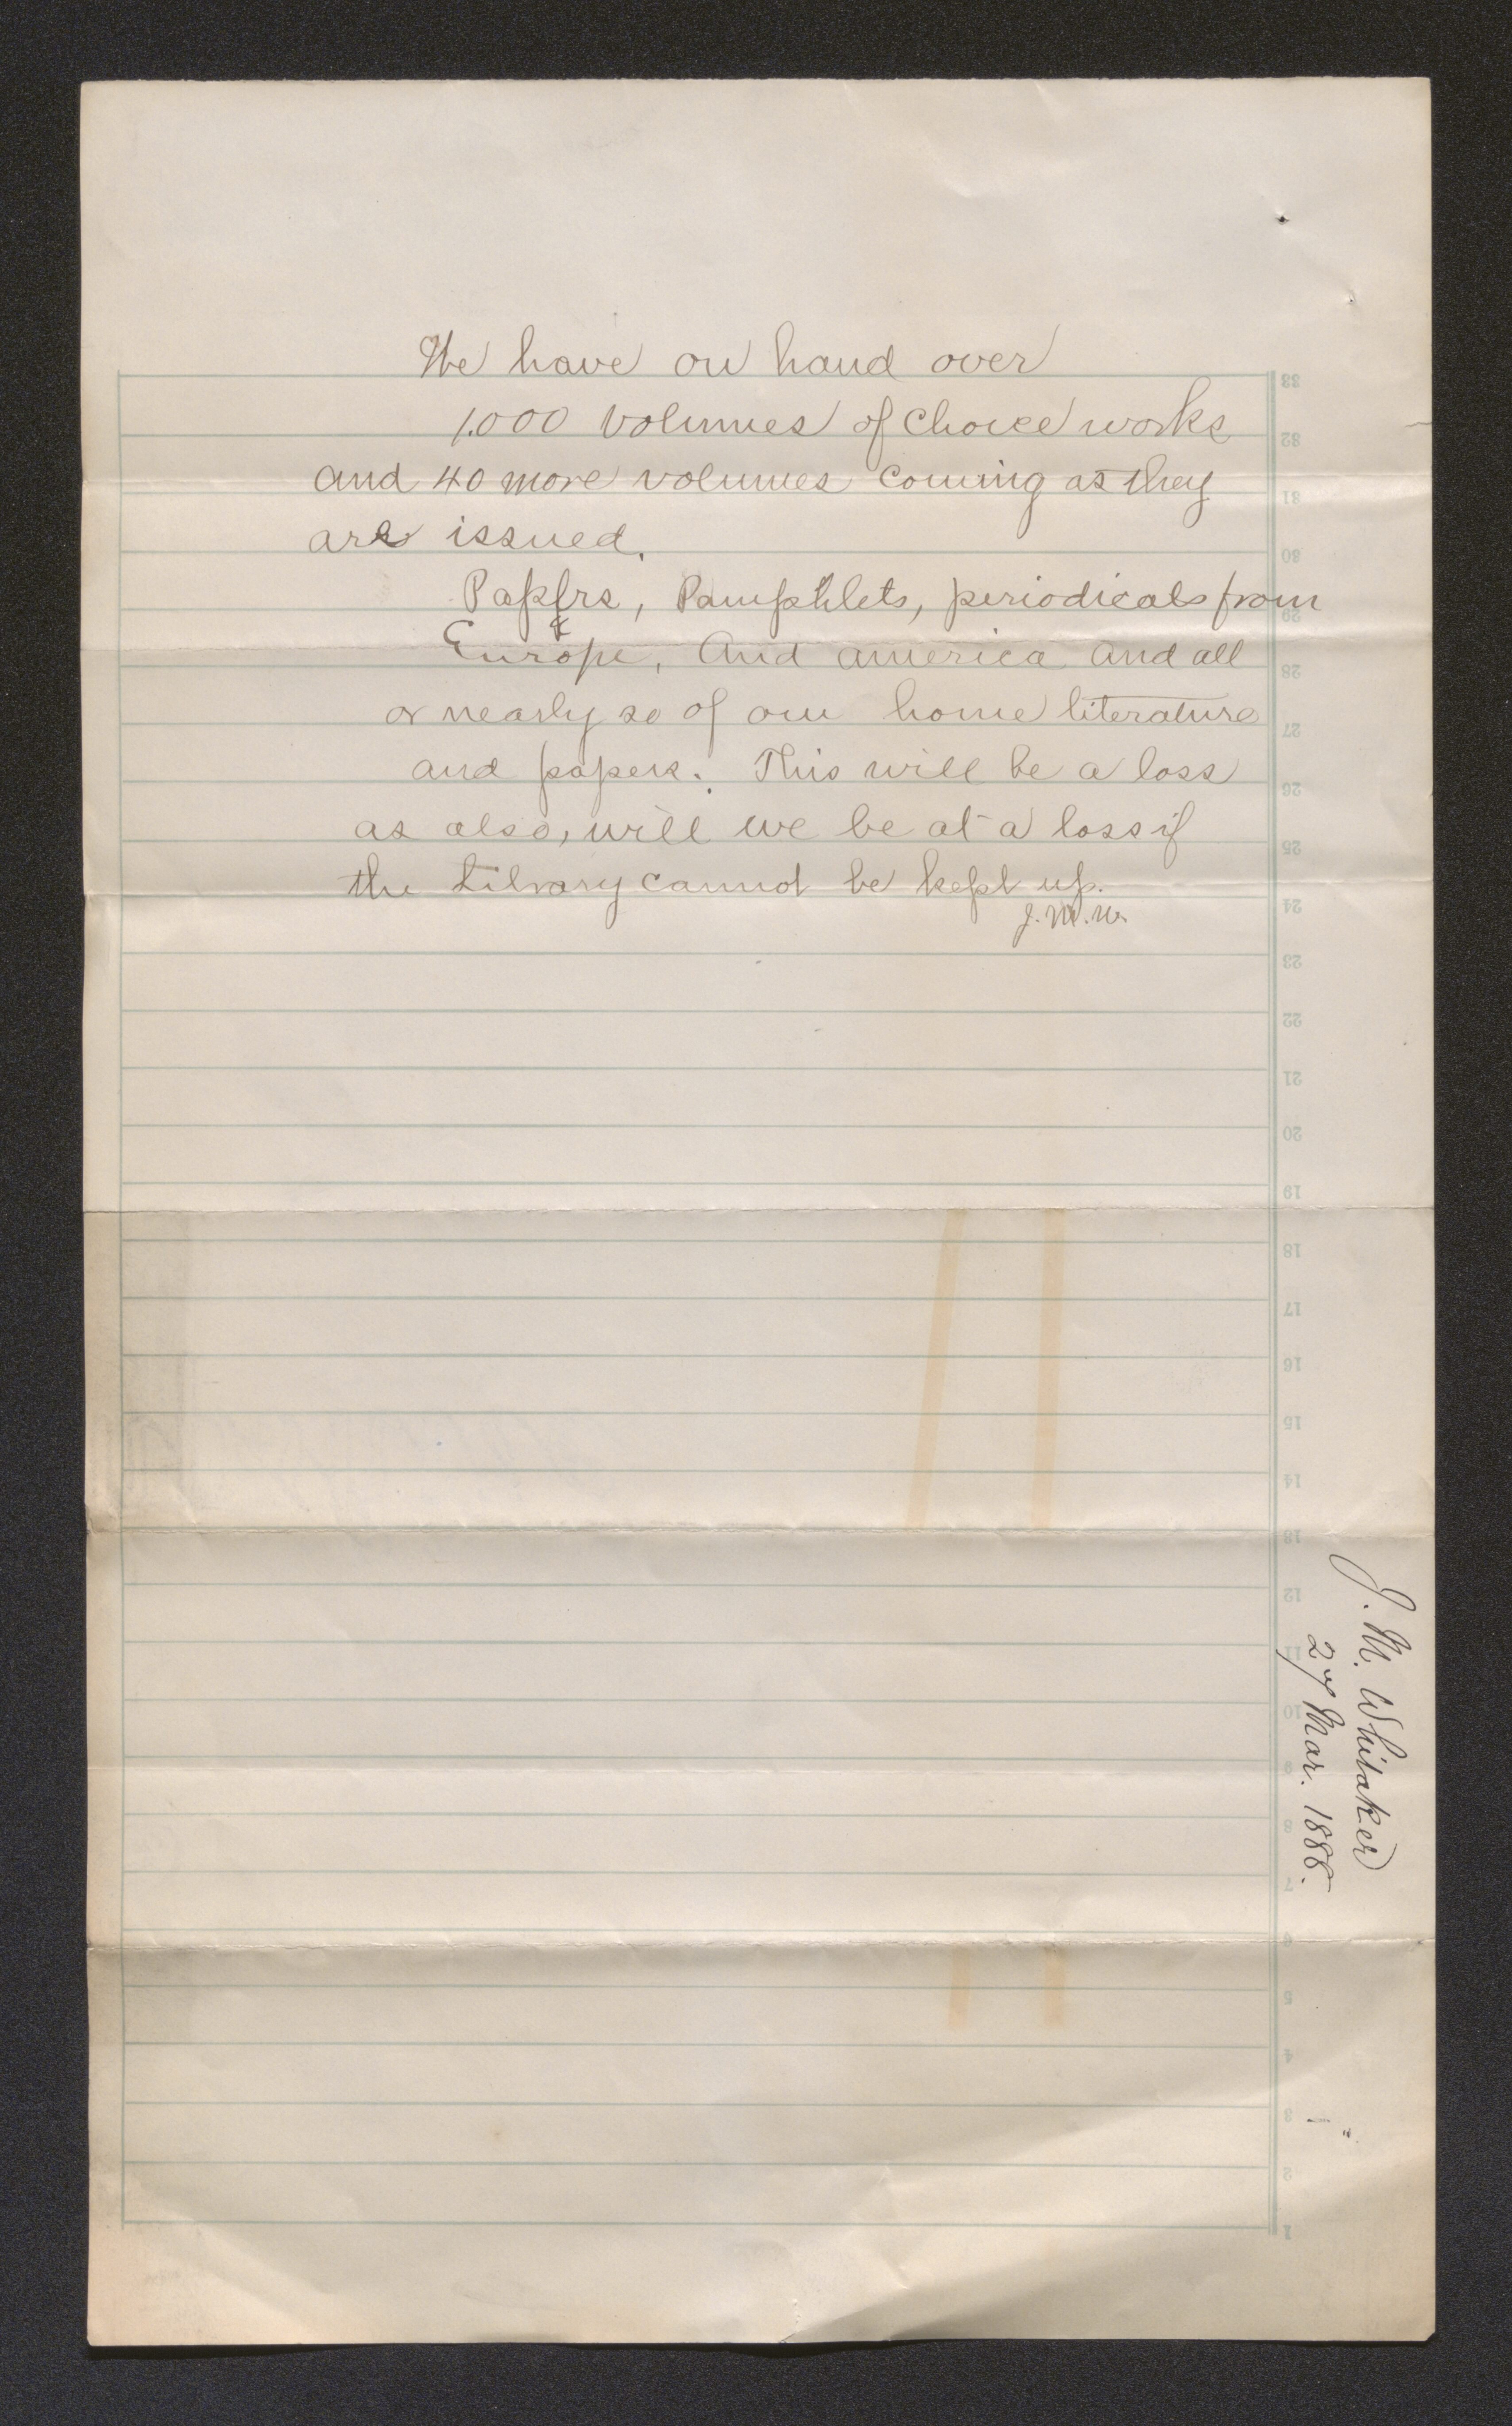 We have on hand over
1.000 volumes of Choice works
and 40 more volumes coming as they
are issued.
Papers, Pamphlets, periodicals from
Europe, And america and all
or nearly so of our home literature
and papers. This will be a loss
as also, will we be at a loss if
the Library cannot be kept up.
J.M.W.
J. M. Whitaker
27 Mar. 1888.
33
32
31
30
29
28
27
26
25
24
23
22
21
20
19
18
17
16
15
14
13
12
11
10
9
8
7
6
5
4
3
2
1